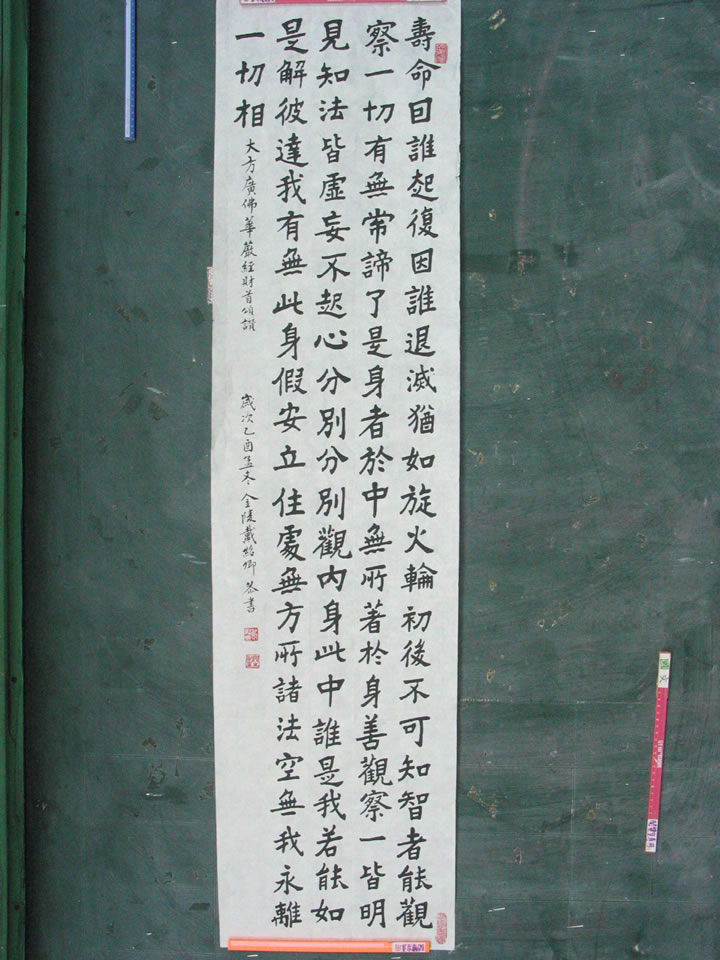 壽命因誰起復因誰退滅猶如旋火輪初後不可知智者能觀
察一切有無常諦了是身者於中無所著於身善觀察一皆明
見知法皆虛妄不起心分別分別觀內身此中誰是我若能如
是解彼達我有無此身假安立住處無方所諸法空無我永離
一切相
大方廣佛華嚴經財首頌讚
歲次乙酉孟冬金陵戴紹卿恭書
國文